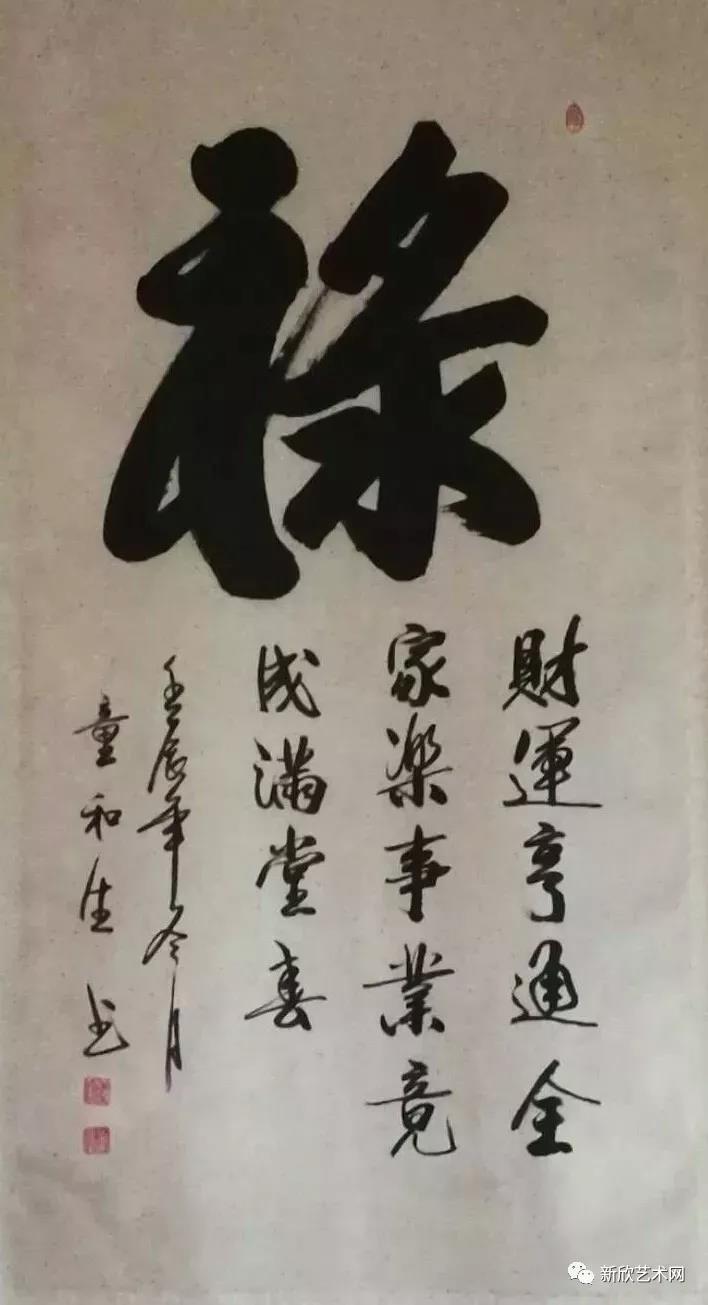 祿
財運亨通全
家樂事業竟
成滿堂春
壬辰年冬月
童和生書
新欣艺术网